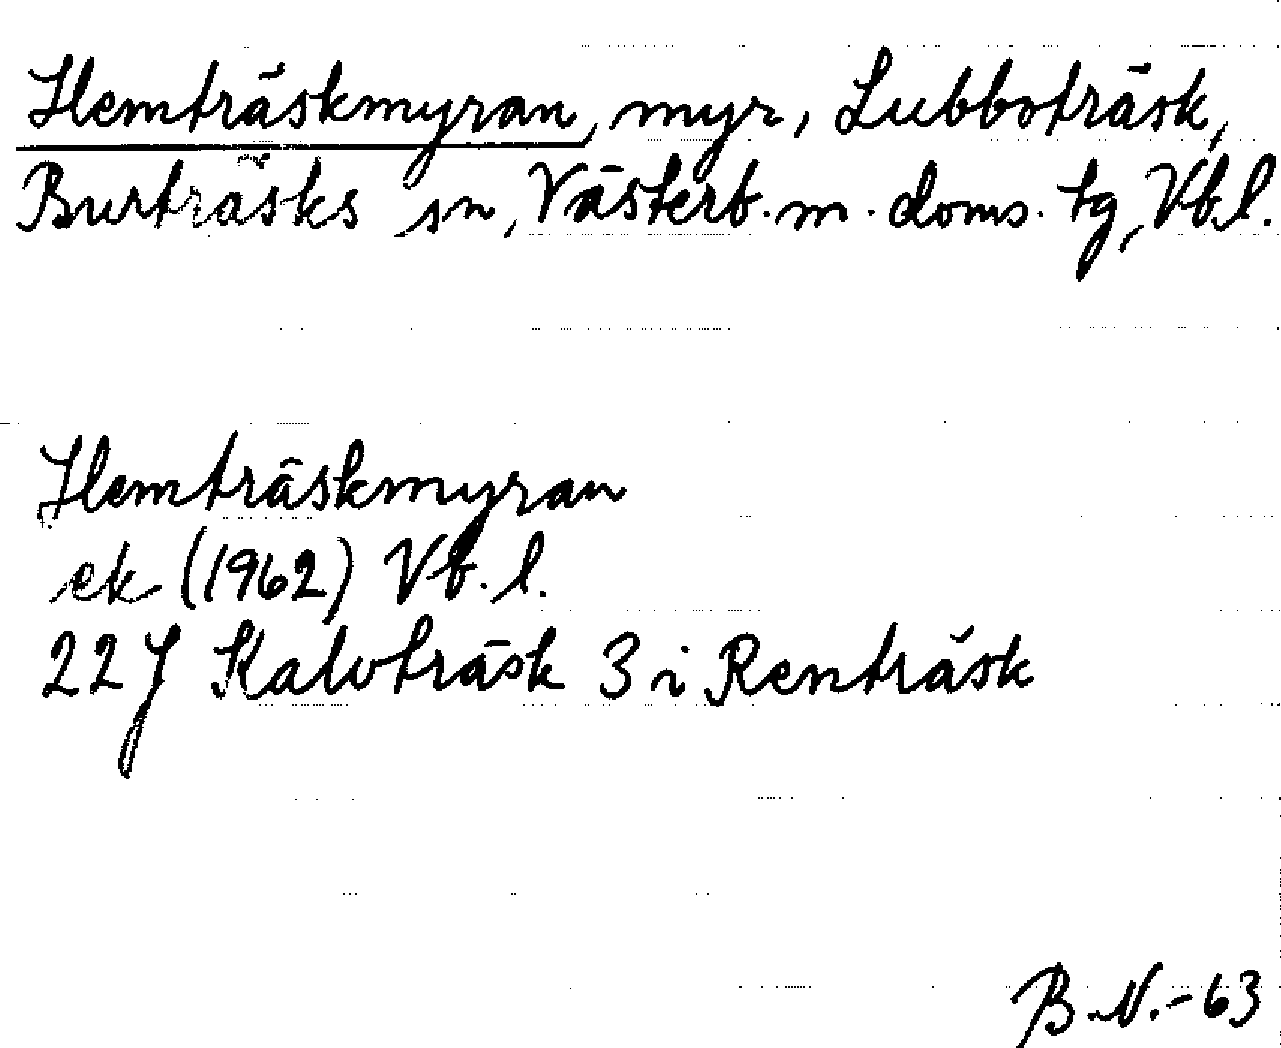 Hemträskmyran, myr, Lubboträsk,
Burträsks sn, Västerb. m. doms. tg, Vb.l.
Hemträskmyran
ek (1962) Vb. l.
22J Kalvträsk 3 i Renträsk
B.N.-63